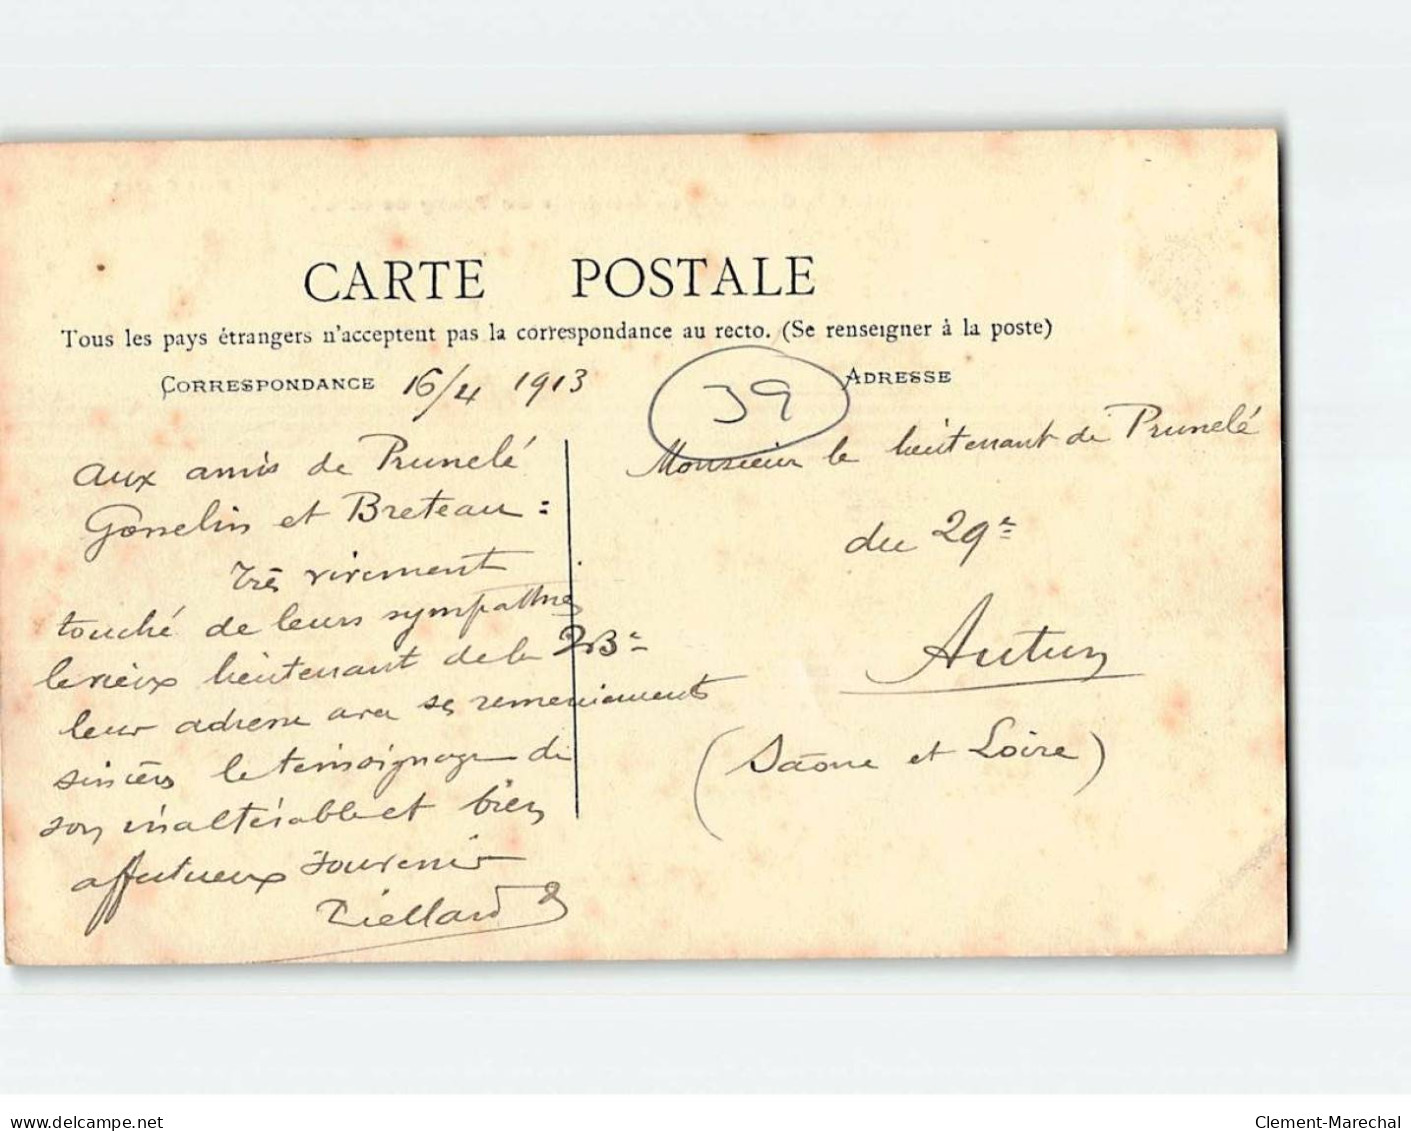 CARTE POSTALE
Tous les pays étrangers n'acceptent pas la correspondance au recto. (Se renseigner à la poste)
CORRESPONDANCE 16/4 1913
aux amis de Prunelé
Gosselin et Breteau :
très vivement
touché de leurs sympathies
le vieux lieutenant de la 2B
leur adresse avec ses remerciements
sincères le témoignage de
son inaltérable et bien
affectueux souvenir
39
ADRESSE
Monsieur le lieutenant de Prunelé
du 29e
Autun
(Saône et Loire)
delcampe.net
Clement-Marechal